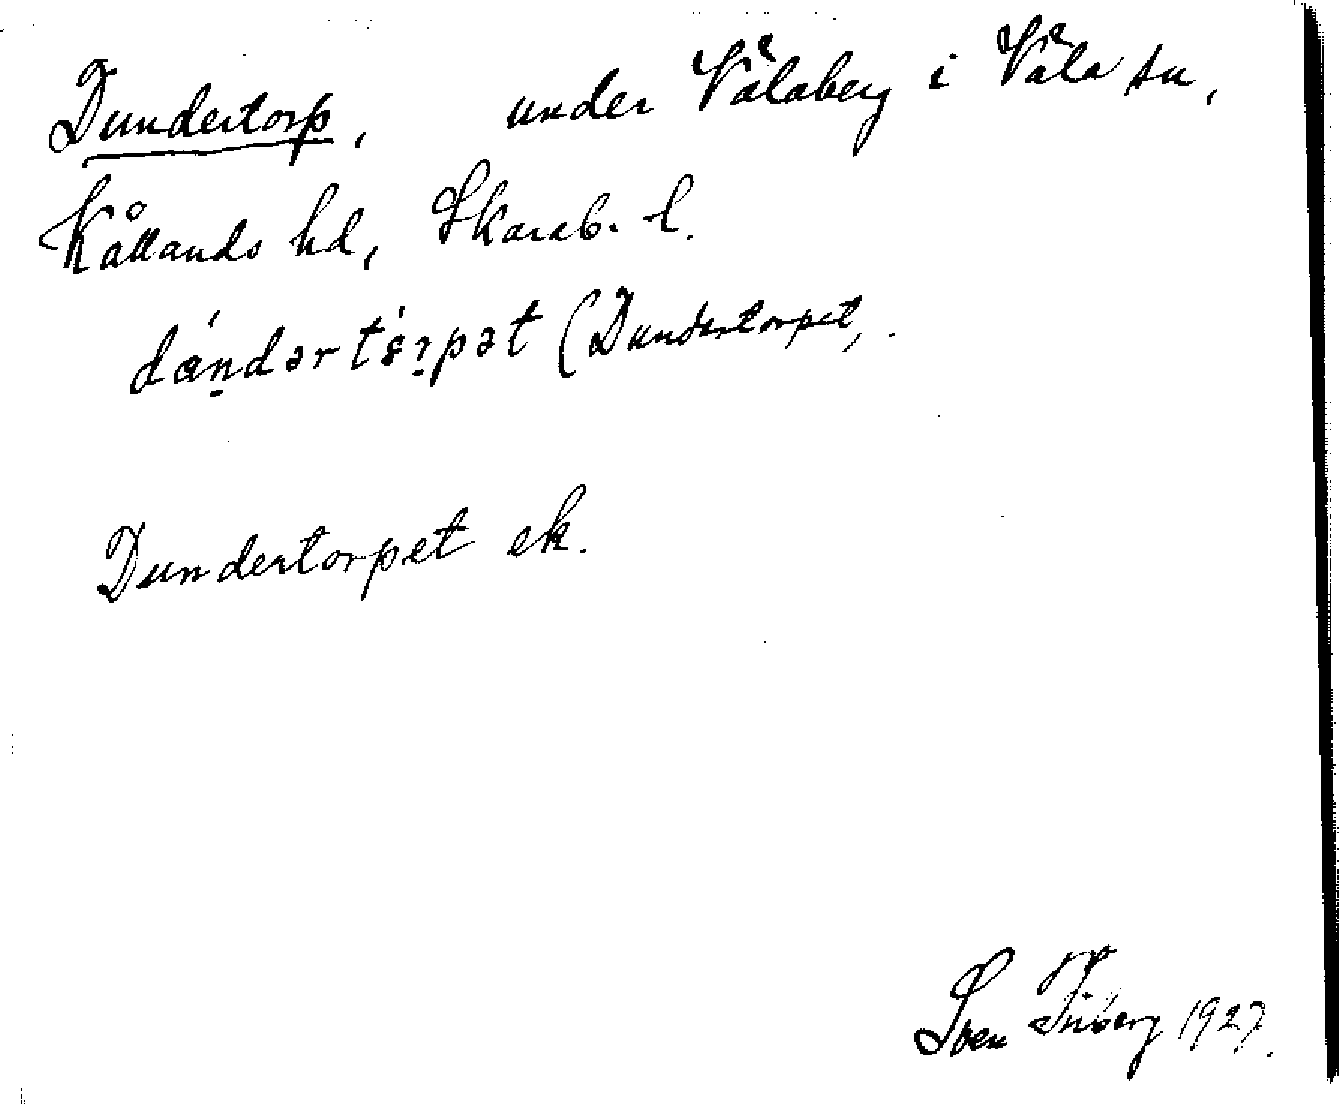 Dundertorp, under Vålaberg i Våla sn,
Kållands hd, Skarab. l.
(Dundertorpet,.
Dundertorpet ek.
Sven Friberg 1927.